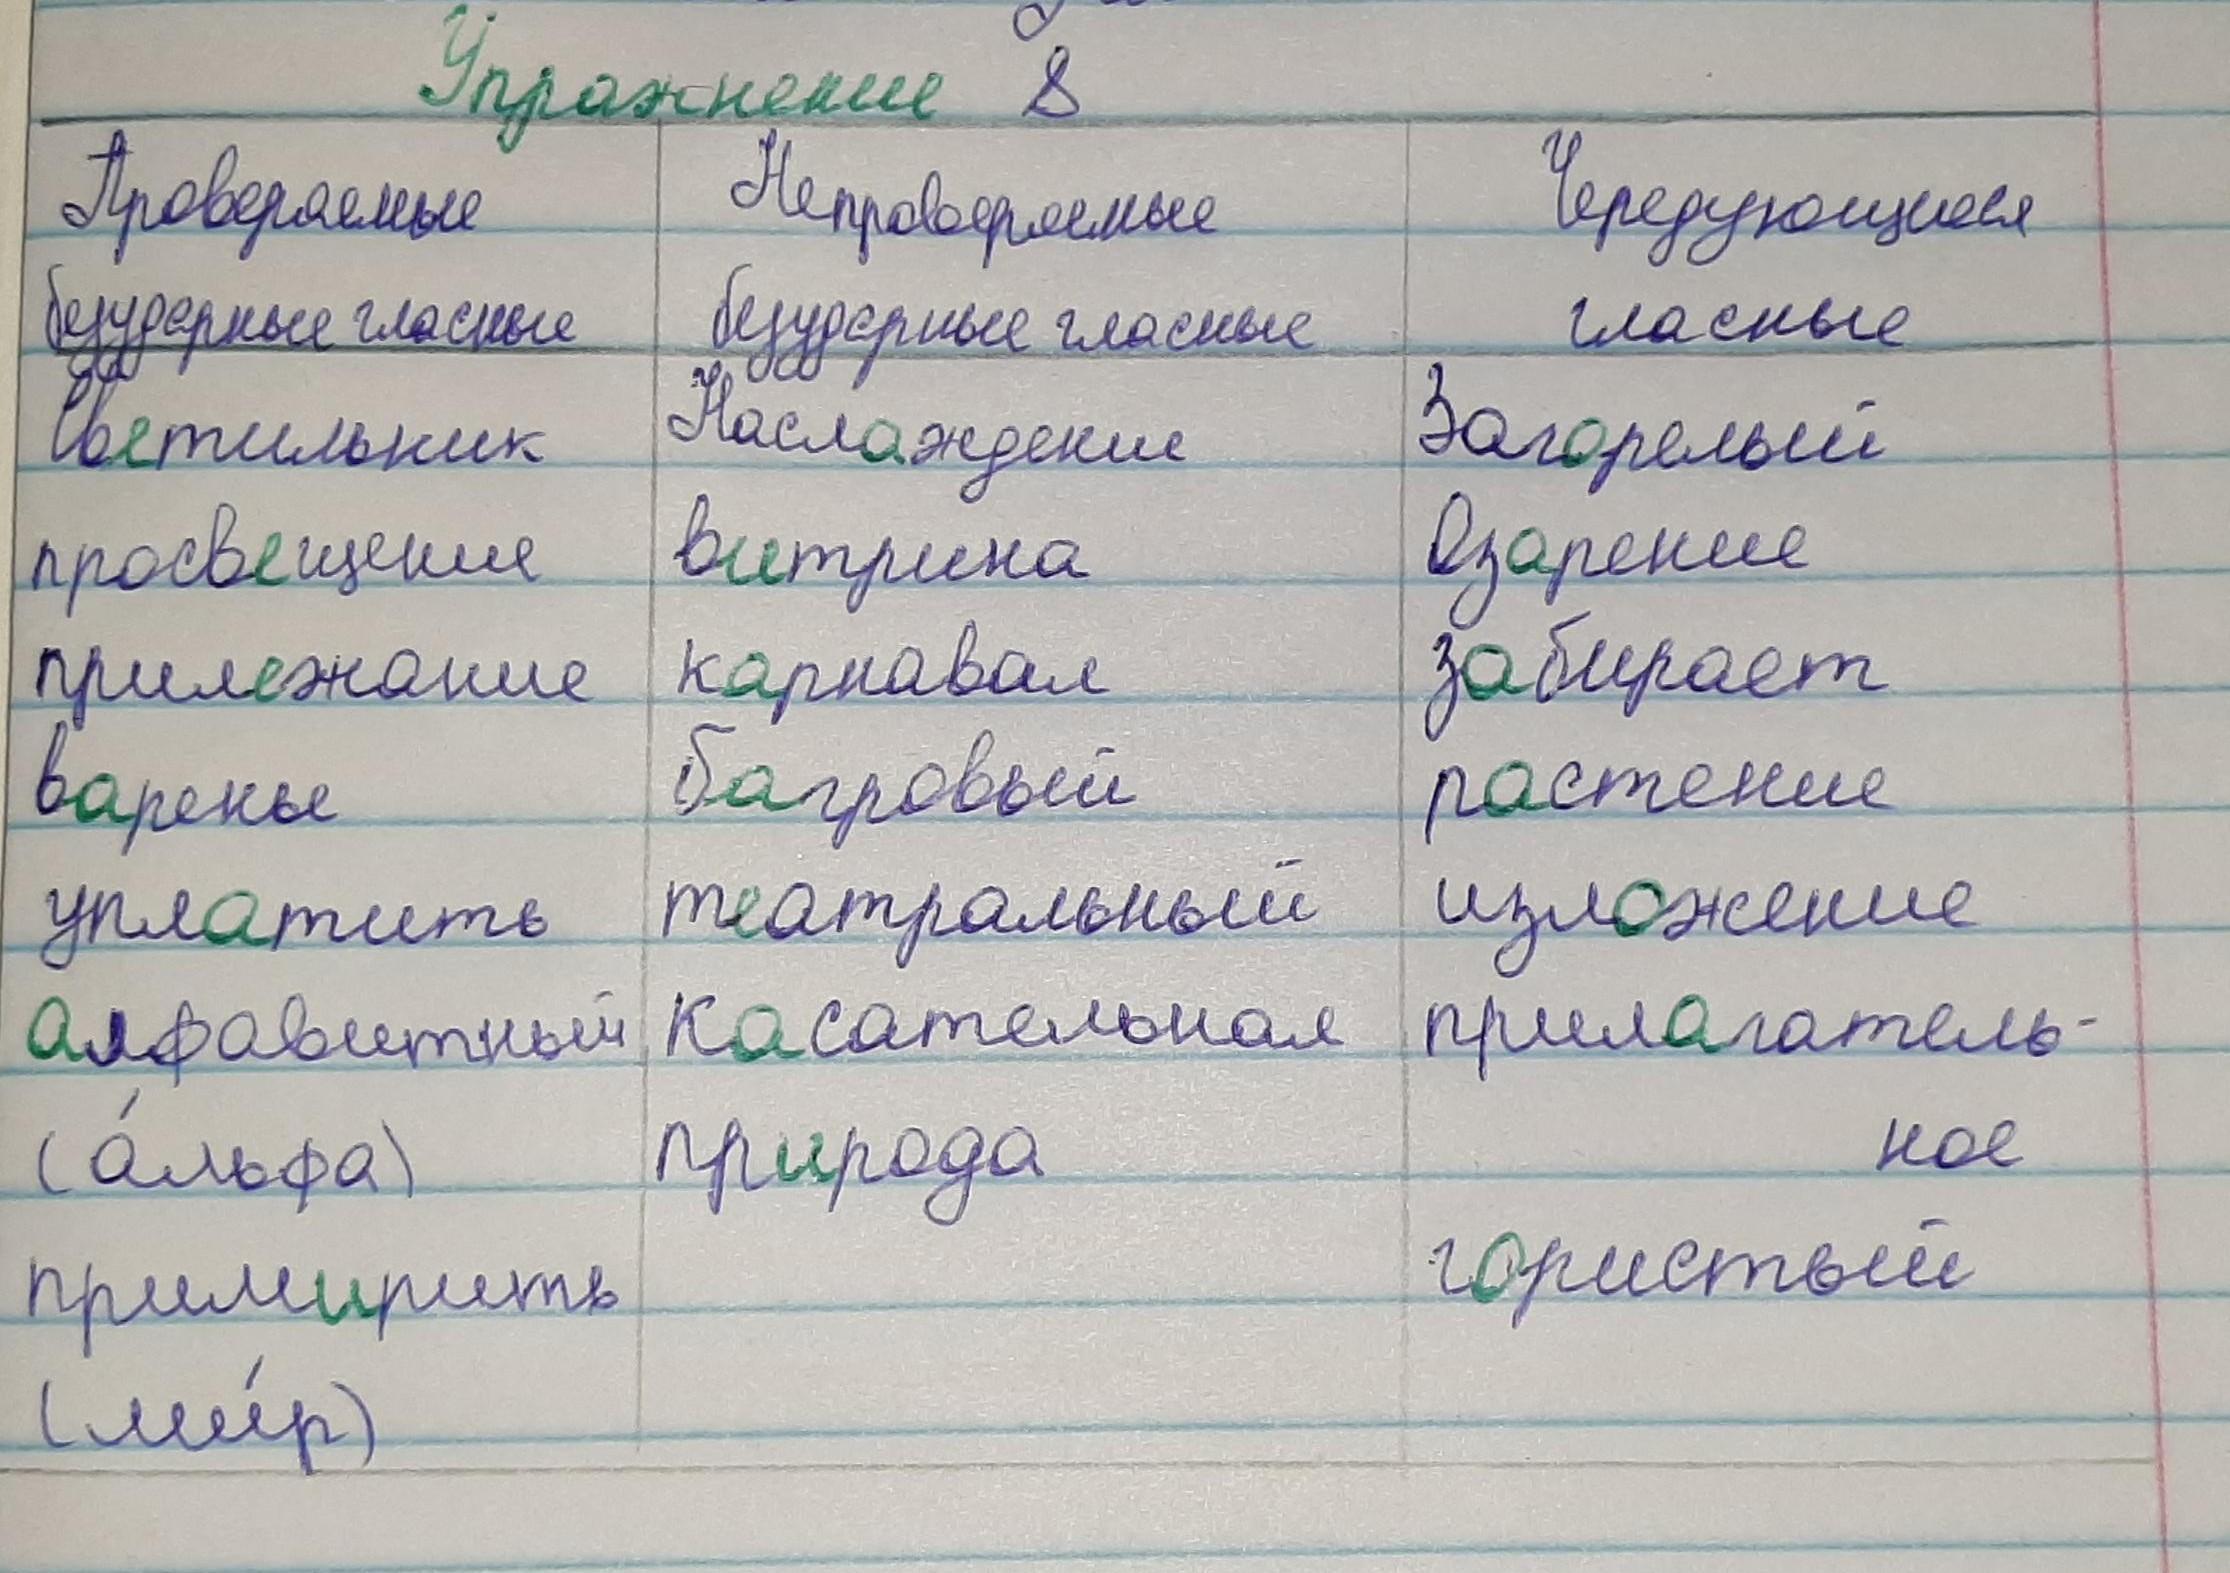 Упражнение 8
Проверяемые Непроверяемые Чередующиеся
безударные гласные безударные гласные гласные
Светильник Наслаждение Загорелый
просвещение витрина Озарение
прилежание карнавал забирает
варенье багровый растение
уплатить театральный изложение
алфавитный касательная прилагатель-
(а́льфа) природа ное
примирить гористый
(ми́р)